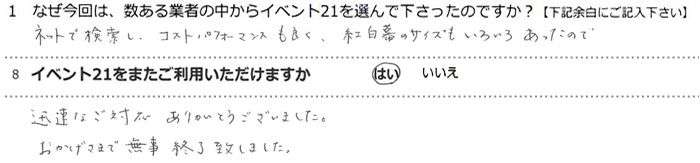 1 なぜ今回は、数ある業者の中からイベント21を選んで下さったのですか？【下記余白にご記入下さい】
ネットで検索し、コストパフォーマンスも良く、紅白幕のサイズもいろいろあったので
8 イベント21をまたご利用いただけますか はい いいえ
迅速なご対応 ありがとうございました。
おかげさまで無事終了致しました。